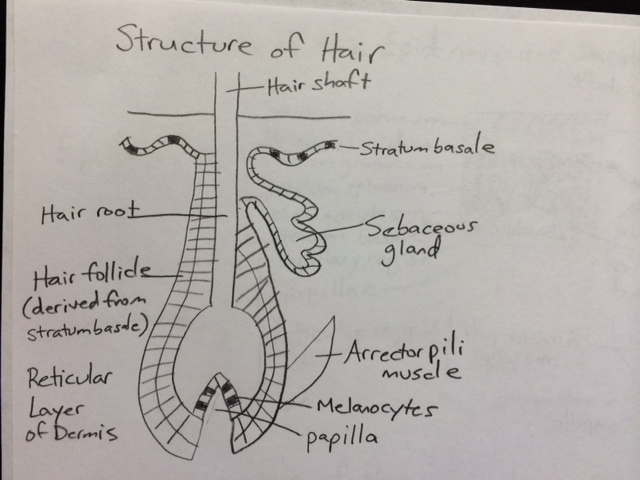 Structure of Hair
Hair shaft
Stratum basale
Hair root
Sebaceous
gland
Hair follicle
(derived from
stratum basale)
Arrector pili
muscle
Reticular
Layer
of Dermis
Melanocytes
papilla